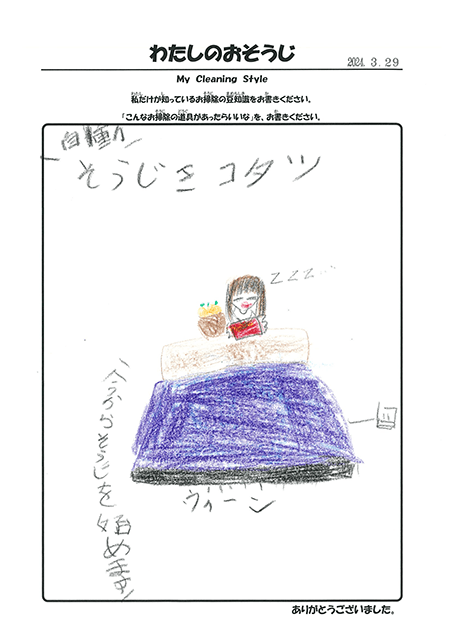 わたしのおそうじ
2024. 3. 29
My Cleaning Style
私だけが知っているお掃除の豆知識をお書きください。
「こんなお掃除の道具があったらいいな」を、お書きください。
自動
そうじきコタツ
ZZZ...
今からそうじを始めます
ウィーン
ありがとうございました。